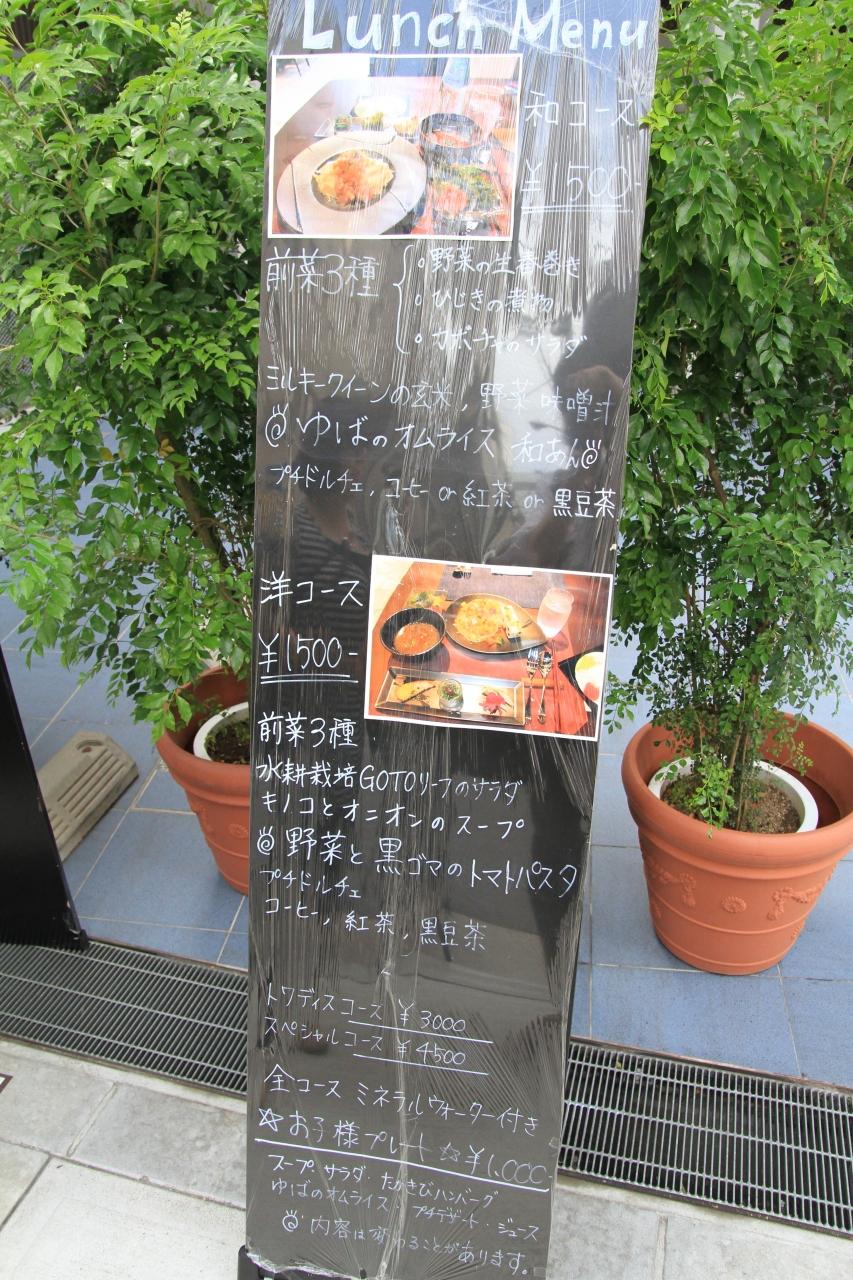 Lunch Menu
和コース
¥ 500-
前菜3種
。野菜の生春巻き
。ひじきの煮物
。カボチャのサラダ
ミルキークイーンの玄米, 野菜 味噌汁
ゆばのオムライス 和あん
プチドルチェ, コーヒー or 紅茶 or 黒豆茶
洋コース
¥1500-
前菜3種
水耕栽培GOTOリーフのサラダ
キノコとオニオンのスープ
野菜と黒ゴマのトマトパスタ
プチドルチェ
コーヒー, 紅茶, 黒豆茶
トワディスコース ¥3000
スペシャルコース ¥4500
全コース ミネラルウォーター付き
☆お子様プレート☆¥1,000
スープ・サラダ・たかきびハンバーグ
ゆばのオムライス・プチデザート・ジュース
内容は変わることがあります。